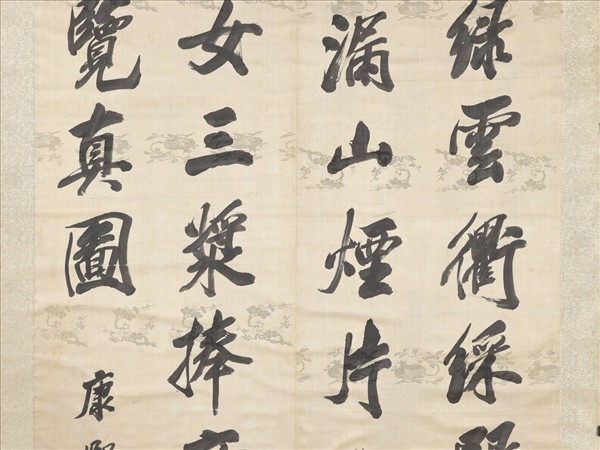 綠雲衢綵
滿山煙片
女三漿捧
覽真圖
康